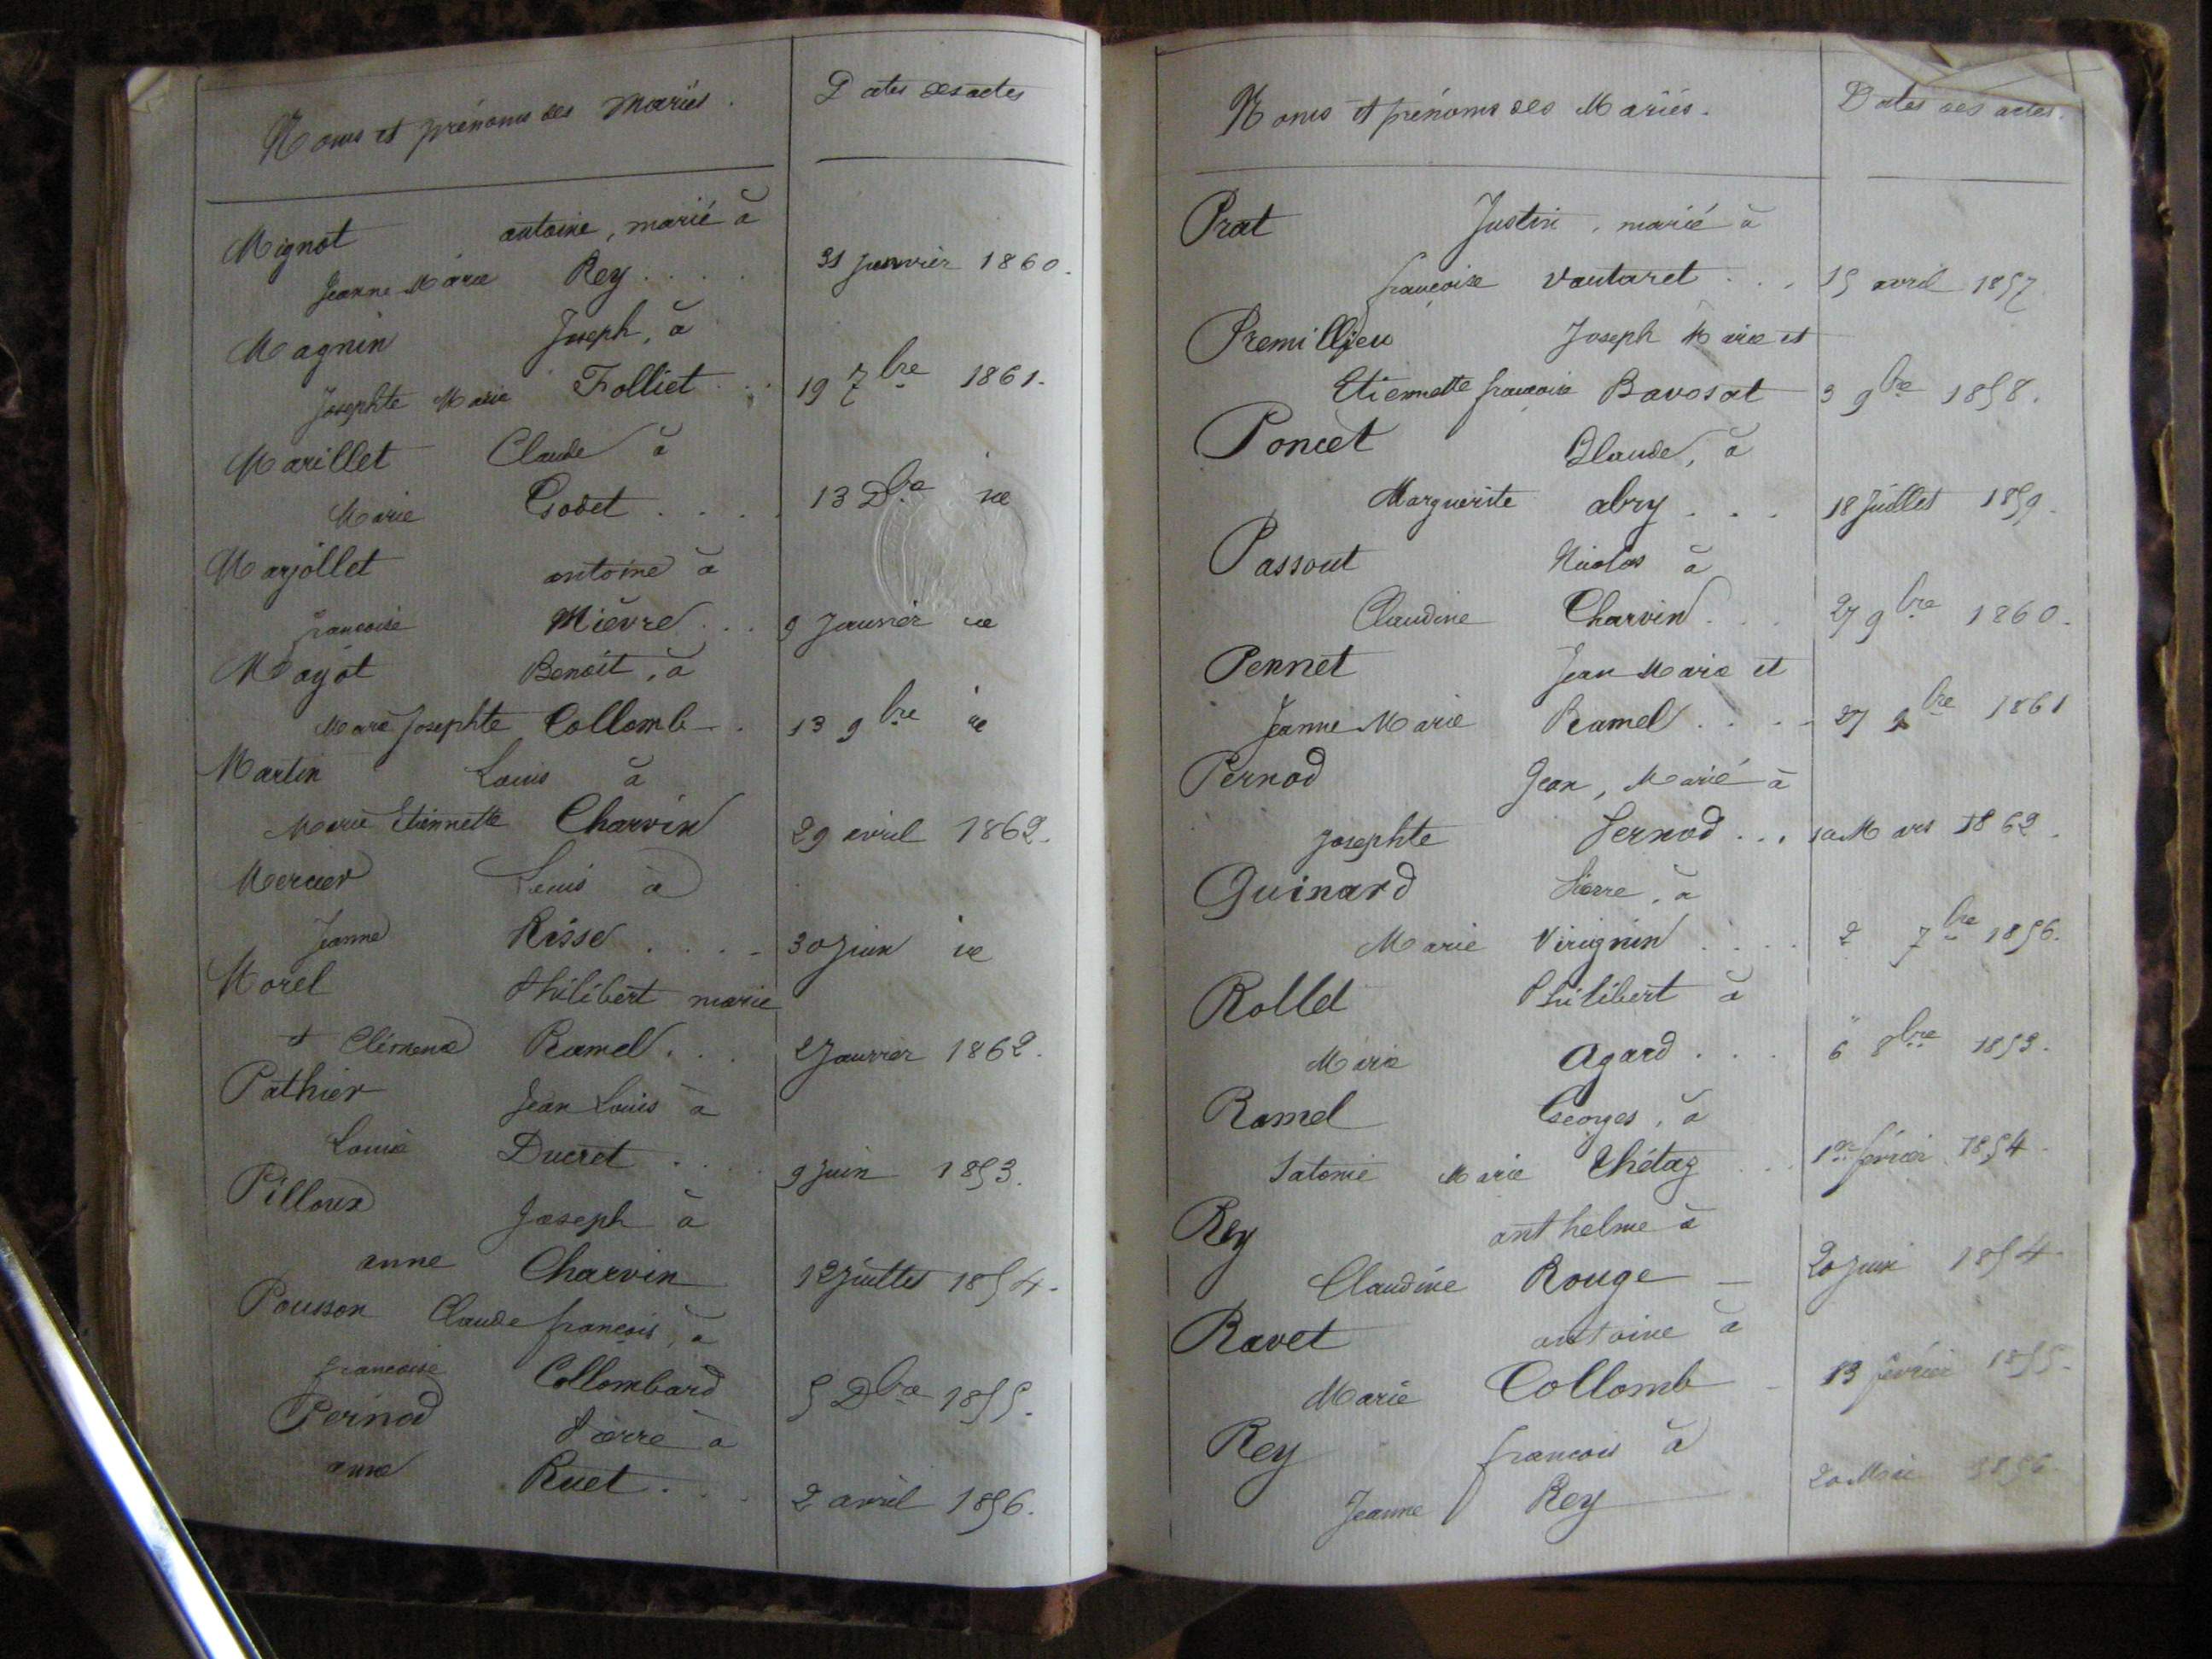 Noms et prénoms des Mariés. Dates des actes
Mignot antoine, marié à
Jeanne Marie Rey . . . . 31 Janvier 1860.
Magnin Joseph, à
Josephte Marie Folliet . . . 19 7bre 1861.
Marillet Claude à
Marie Godet . . . . 13 Dbre id
Marjollet antoine à
françoise Mièvre . . . 9 Janvier id
Mayot Benoit, à
Marie Josephte Collomb - . 13 9bre id
Martin Louis à
Marie Etiennette Charvin 29 avril 1862.
Mercier Louis à
Jeanne Risse . . . . 30 Juin id
Morel Philibert marie
et Clémence Ramel . . . 2 Janvier 1862.
Pathier Jean Louis à
Louise Ducret . . . . 9 Juin 1853.
Pilloux Joseph à
anne Charvin 12 Juillet 1854.
Pousson Claude françois, à
françoise Collombard 5 Dbre 1855.
Pernod Pierre à
anne Ruet . . . 2 avril 1856.
Noms et prénoms des Mariés. Dates des actes.
Prat Justin, marié à
françoise Vautaret . . . 15 avril 1857
Premillieu Joseph Marie et
Etiennette françoise Bavosat 3 9bre 1858.
Poncet Claude, à
Marguerite abry . . . 18 Juillet 1859.
Passout Nicolas à
Claudine Charvin . . . 27 9bre 1860.
Pennet Jean Marie et
Jeanne Marie Ramel . . . . 27 bre 1861
Pernod Jean, Marié à
Josephte Pernod . . . 10 Mars 1862.
Quinard Pierre, à
Marie Virignin . . . . 2 7bre 1856.
Rollet Philibert à
Marie Agard . . . 6 8bre 1853.
Ramel Georges, à
Salomé Marie Thétaz . . . 1er février 1854.
Rey anthelme à
Claudine Rouge - 20 Juin 1854.
Ravet antoine à
Marie Collomb - 13 février 1855.
Rey françois à
Jeanne Rey 20 Mai 1856.